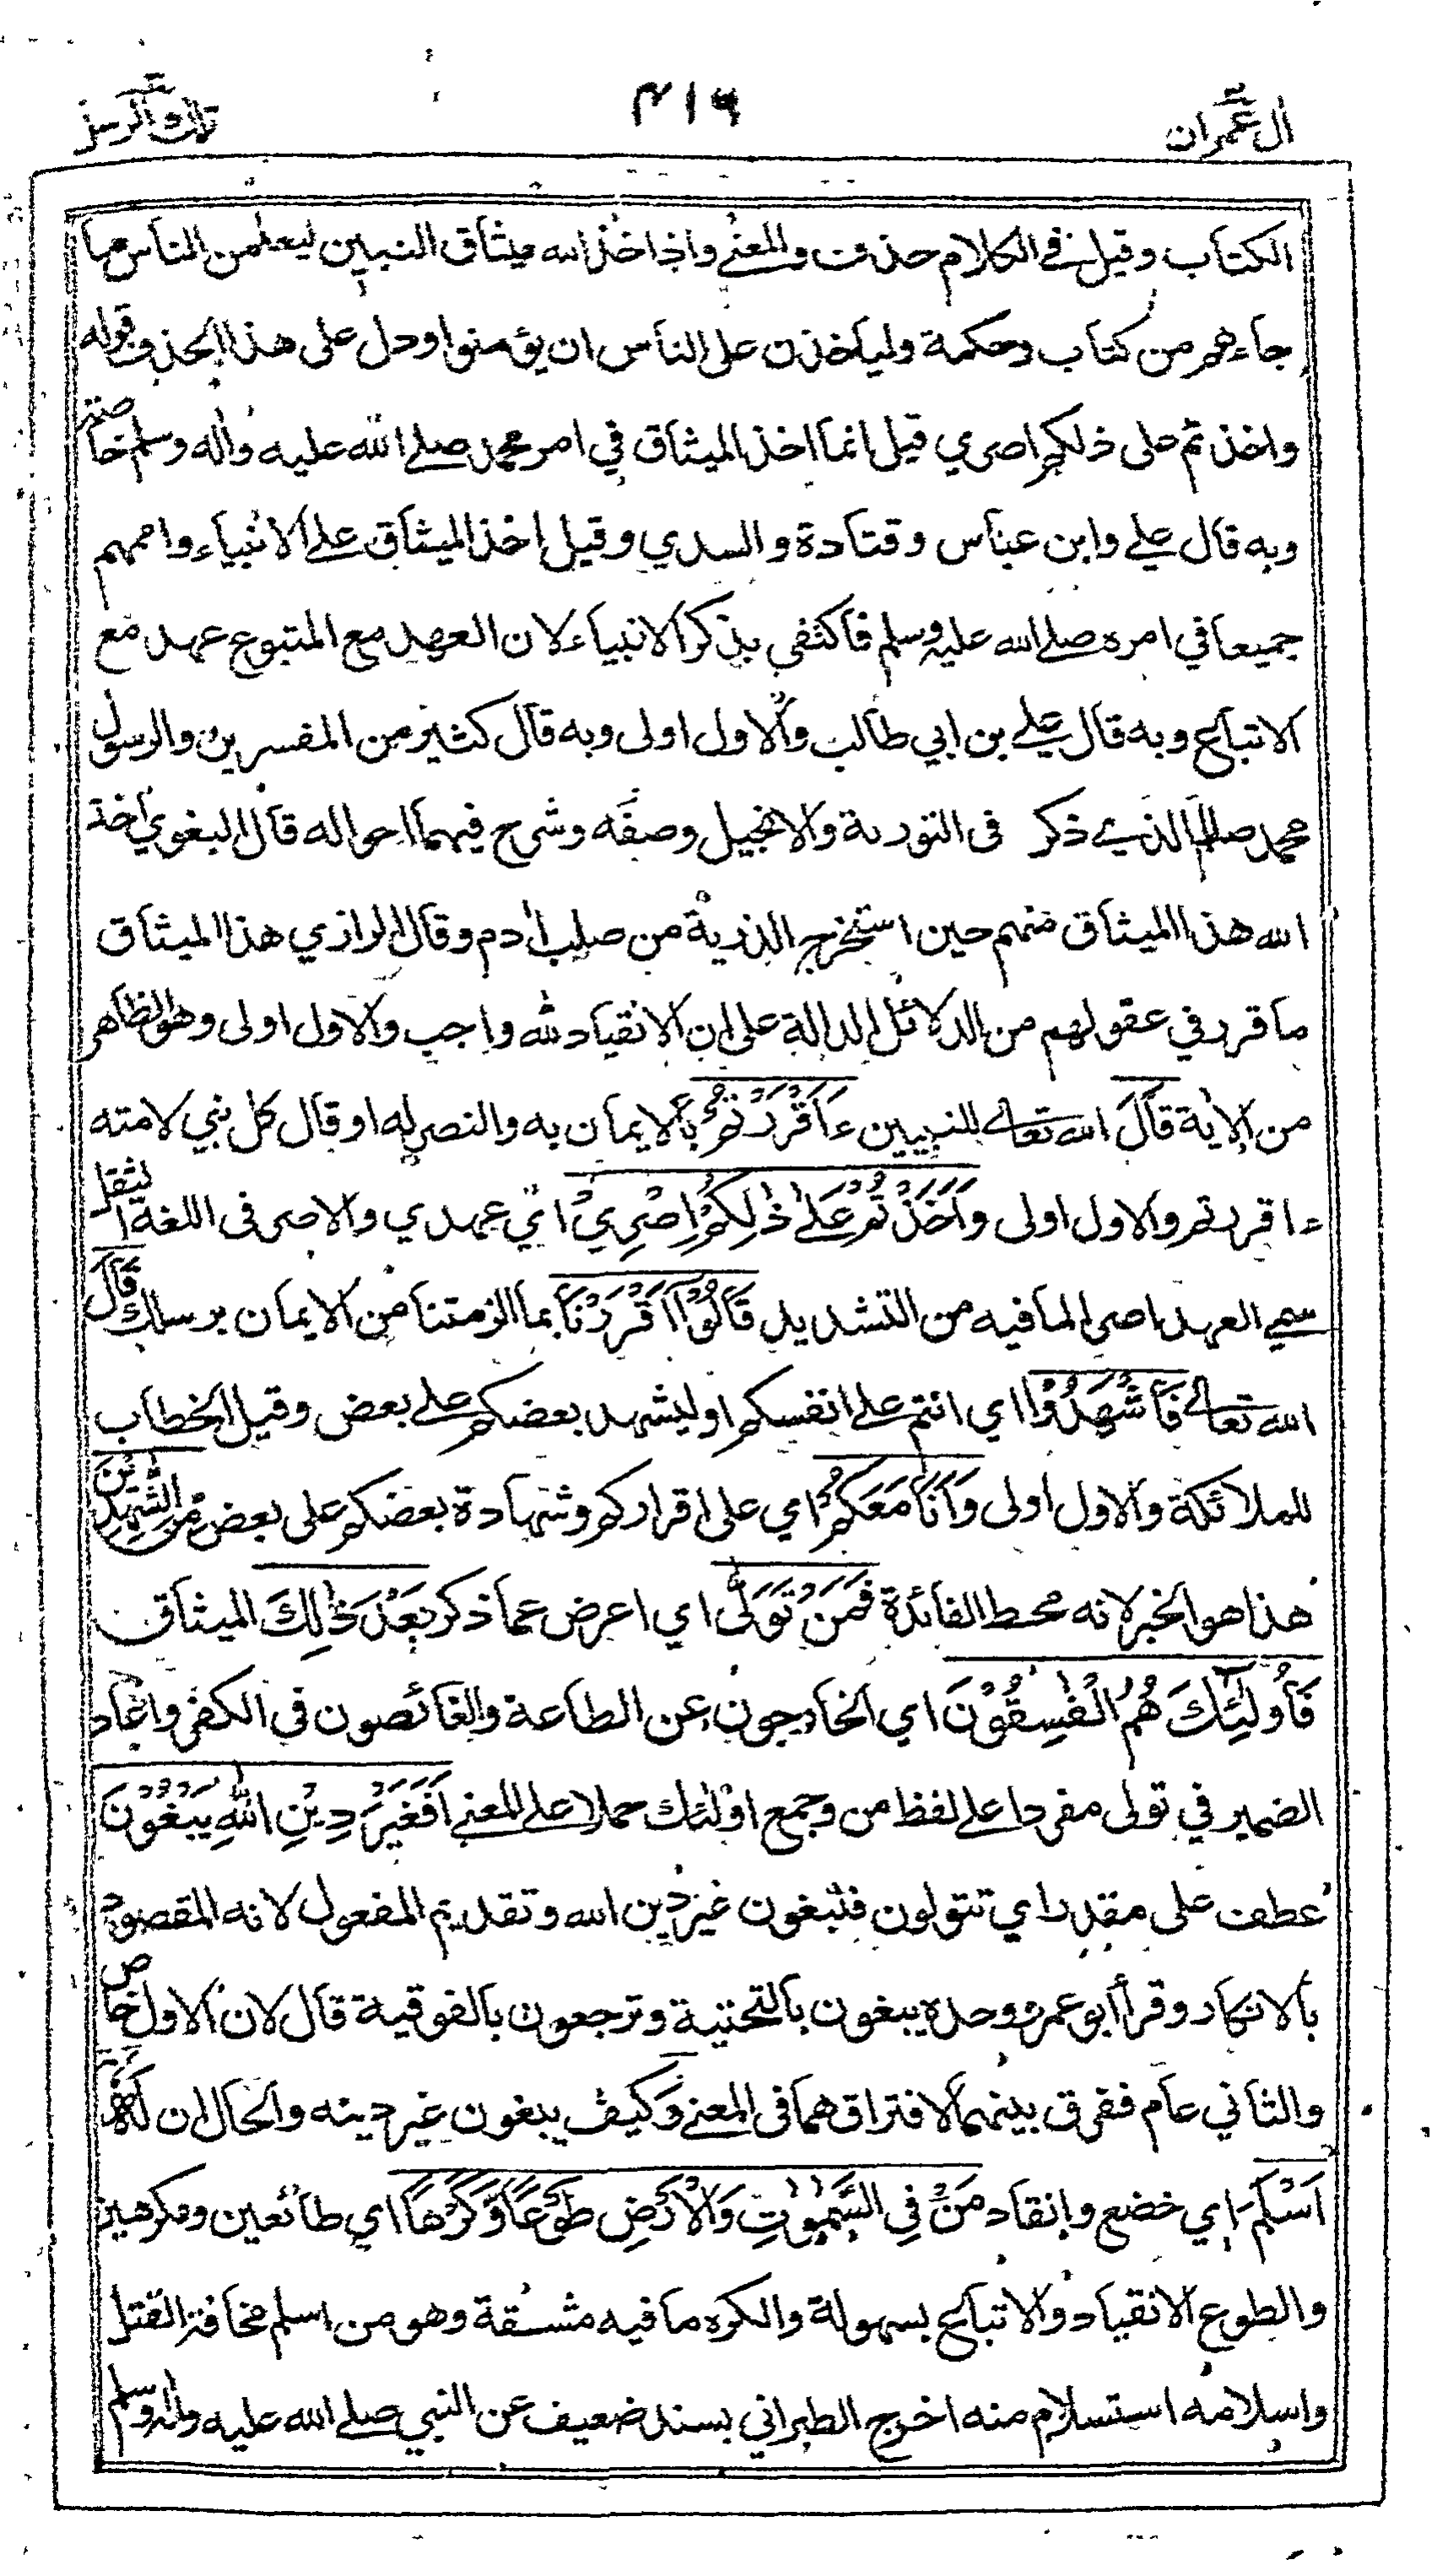 اٰل عمران
٤١٦
تلك الرسل
الكتاب وقيل في الكلام حذف والمعنى واذا خذ الله ميثاق النبيين ليعلمن الناس ما
جاءهم من كتاب وحكمة وليأخذن على الناس ان يؤمنوا ودل على هذا الحذف قوله
واخذتم على ذلكم اصري قيل انما اخذ الميثاق في امر محمد صلى الله عليه واٰله وسلم خاصة
وبه قال علي وابن عباس وقتادة والسدي وقيل اخذ الميثاق على الانبياء واممهم
جميعا في امره صلى الله عليه وسلم فاكتفى بذكر الانبياء لان العهد مع المتبوع عهد مع
الاتباع وبه قال علي بن ابي طالب والاول اولى وبه قال كثير من المفسرين والرسول
محمد صللم الذي ذكر في التورىة والانجيل وصفه وشرح فيهما احواله قال البغوي اخذ
الله هذا الميثاق منهم حين استخرج الذرية من صلب اٰدم وقال الرازي هذا الميثاق
ما قرر في عقولهم من الدلائل الدالة على ان الانقياد لله واجب والاول اولى وهو الظاهر
من الاٰية قَالَ الله تعالى للنبيين ءَاَقْرَرْتُمْ بالايمان به والنصر له او قال كل نبي لامته
ءاقررتم والاول اولى وَاَخَذْتُمْ عَلٰى ذٰلِكُمْ اِصْرِيْ اي عهدي والاصر في اللغة الثقل
سمي العهد اصرا لما فيه من التشديد قَالُوْا اَقْرَرْنَا بما الزمتنا من الايمان برسلك قَالَ
الله تعالى فَاشْهَدُوْا اي انتم على انفسكم او ليشهد بعضكم على بعض وقيل الخطاب
للملائكة والاول اولى وَاَنَا مَعَكُمْ اي على اقراركم وشهادة بعضكم على بعض مِّنَ الشّٰهِدِيْنَ
هذا هو الخبر لانه محط الفائدة فَمَنْ تَوَلّٰى اي اعرض عما ذكر بَعْدَ ذٰلِكَ الميثاق
فَاُولٰٓئِكَ هُمُ الْفٰسِقُوْنَ اي الخارجون عن الطاعة والغائصون في الكفر واعاد
الضمير في تولى مفردا على لفظ من وجمع اولئك حملا على المعنى اَفَغَيْرَ دِيْنِ اللّٰهِ يَبْغُوْنَ
عطف على مقدر اي تتولون فتبغون غير دين الله وتقديم المفعول لانه المقصود
بالانكار وقرأ ابو عمرو وحده يبغون بالتحتية وترجعون بالفوقية قال لان الاول خاص
والثاني عام ففرق بينهما لافتراقهما في المعنى وَكيف يبغون غير دينه والحال ان لَهٗ
اَسْلَمَ اي خضع وانقاد مَنْ فِي السَّمٰوٰتِ وَالْاَرْضِ طَوْعًا وَّكَرْهًا اي طائعين ومكرهين
والطوع الانقياد والاتباع بسهولة والكره ما فيه مشقة وهو من اسلم مخافة القتل
واسلامه استسلام منه اخرج الطبراني بسند ضعيف عن النبي صلى الله عليه واٰله وسلم